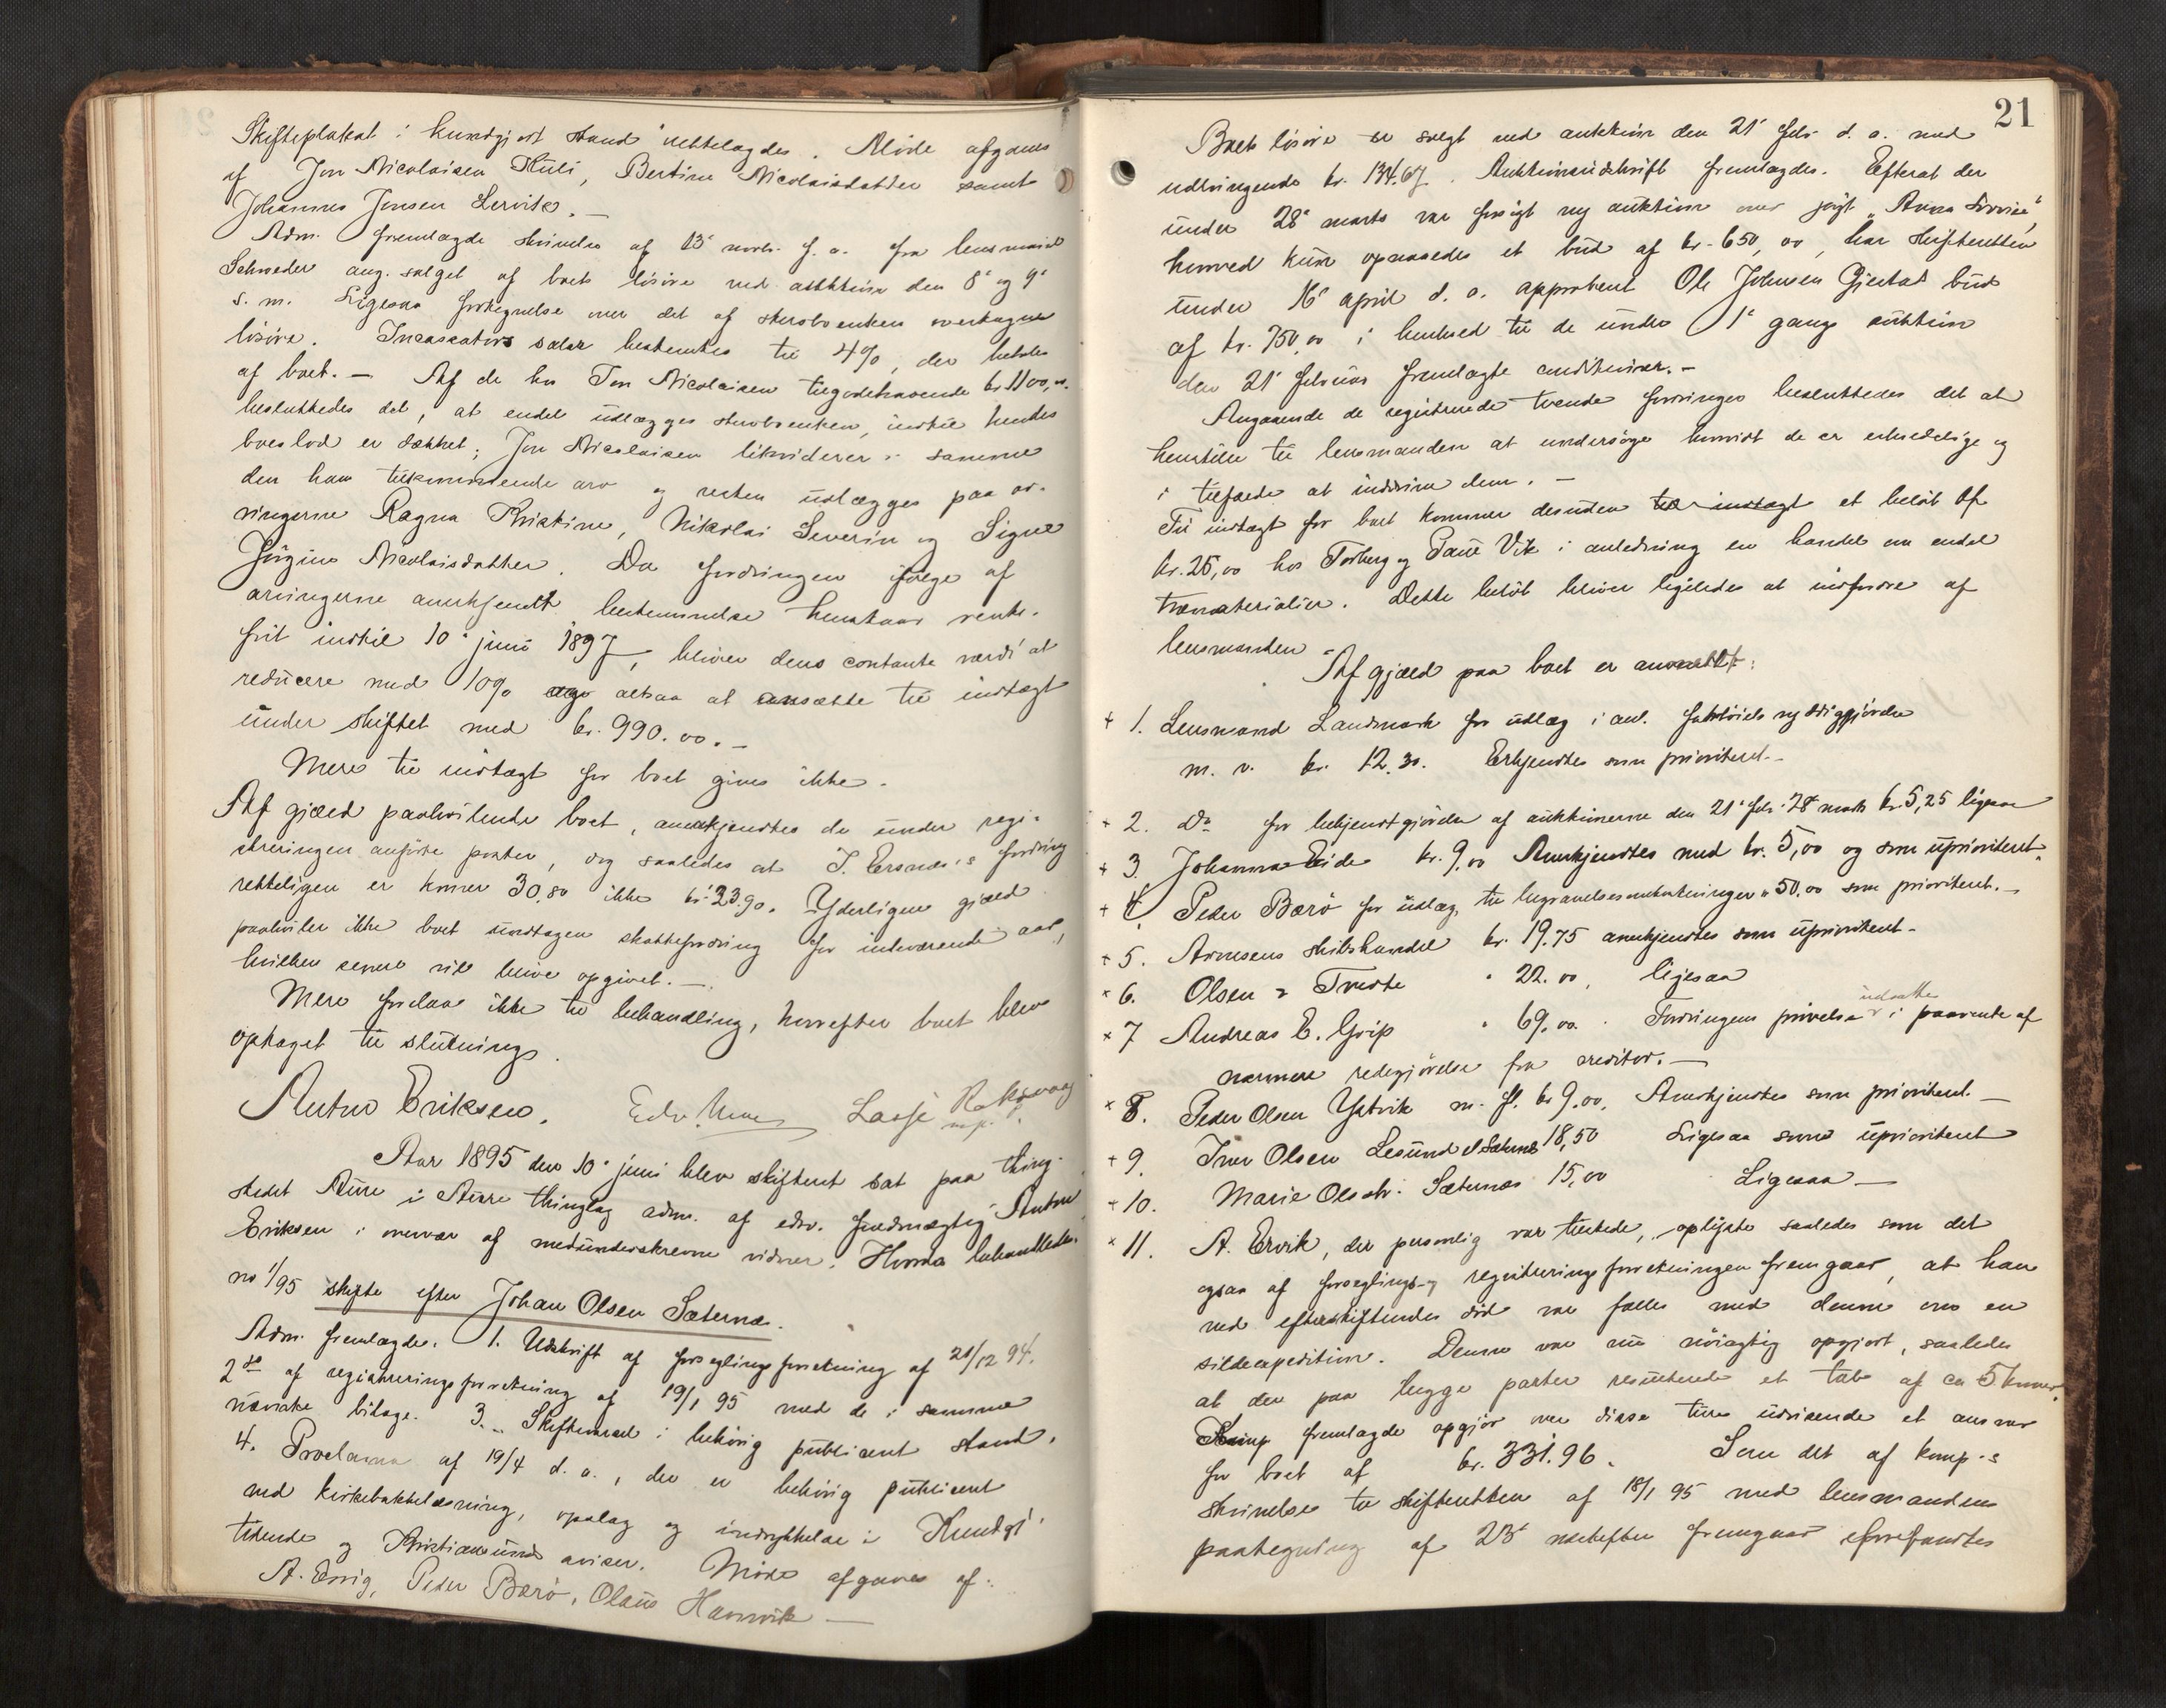 Skifteplakat i kundgjort stand rettelagdes. Møde afgaves
af Jon Nicolaisen Kuli, Bertine Nicolaisdatter samt
Johannes Jensen Lervik. –
Adm. fremlagde skrivelse af 13' novb. f. a. fra lensmand
Schrøder ang. salget af boets løsøre ved auktion den 8' og 9'
s. m. Ligesaa fortegnelse over det af sterboenken overtagne
løsøre. Incassators salær bestemtes til 4%, der betales
af boet. – Af de hos Jon Nicolaisen tilgodehavende kr 1100,00
besluttedes det, at endel udlægges sterboenken, indtil hendes
boeslod er dækket; Jon Nicolaisen likviderer i samme
den ham tilkommende arv og resten udlægges paa ar-
vingerne Ragna Kristine, Nikolai Severin og Signe
Jørgine Nicolaisdatter. Da fordringen ifølge af
arvingerne anerkjendt bestemmelse henstaar rente-
frit indtil 10' juni 1897, bliver dens contante værdi at
reducere med 10% altsaa at ansætte til indtægt
under skiftet med kr. 990.00. –
Mere til indtægt for boet gives ikke.
Af gjæld paahvilende boet, anerkjendtes de under regi-
streringen anførte poster, dog saaledes at I. Ersnæs's fordring
retteligen er kroner 30,80 ikke kr. 23.90. Yderligere gjæld
paahviler ikke boet undtagen skattefordring for indeværende aar,
hvilken senere vil blive opgivet. –
Mere forelaa ikke til behandling, hvorefter boet blev
optaget til slutning.
Anton Eriksen. Edv. Lasse Roksvaag
m. p.
Aar 1895 den 10' juni blev skifteret sat paa thing-
stedet Aure i Aure thinglag adm. af edsv. fuldmægtig Anton
Eriksen i overvær af medunderskrevne vidner. Hvorda behandledes
no 1/95 skifte efter Johan Olsen Sæternæs.
Adm. fremlagde. 1. Udskrift af forseglingsforretning af 21/12 94.
2 do af registreringsforretning af 19/1 95 med de i samme
nævnte bilage. 3. Skiftevarsel i behørig publiceret stand.
4. Proclama af 19/4 d. a., der er behørig publiceret
ved kirkebakkelæsning, opslag og indrykkelse i Kundgj.
tidende og Kristiansunds aviser. Møde afgaves af:
A. Ervig, Peder Barø, Olaus Hamvik –
21
Boets løsøre er solgt ved auktion den 21' febr d. a. med
udbringende kr. 134.67. Auktionsudskrift fremlagdes. Efterat der
under 28' marts var forsøgt ny auktion over jagt "Anna Lovise",
hvorved kun opnaaedes et bud af kr. 650,00, har skifteretten
under 16' april d. a. approberet Ole Johnsen Gjestad bud
af kr. 750,00 i henhold til de under 1' gangs auktion
den 21' februar fremlagte conditioner. –
Angaaende de registrerede tvende fordringer besluttedes det at
henstille til lensmanden at undersøge hvorvidt de er erholdelige og
i tilfælde at inddrive dem. –
Til indtægt for boet kommer desuden til indtægt et beløb af
kr. 25,00 hos Torberg og Paul Vik i anledning en handel om endel
træmaterialier. Dette beløb bliver ligeledes at indfordre af
lensmanden
Af gjæld paa boet er anmeldt:
+ 1. Lensmand Landmark for udlæg i anl. fartøiets nyddiggjørelse
m. v. kr. 12.30. Erkjendtes som prioriteret. –
+ 2. Do for bekjendtgjørelse af auktionerne den 21' febr. 28' marts kr. 5,25 ligesaa
+ 3. Johanna Eide kr. 9,00 Anerkjendtes med kr. 5,00 og som uprioriteret.
+ 4. Peder Barø for udlæg til begravelsesomkostninger " 50,00 som prioriteret. –
+ 5. Arnesens skibshandel kr. 19.75 anerkjendtes som uprioriteret –
× 6. Olsen & Truste " 22.00, ligesaa
× 7 Andreas E. Grip " 69,00. Fordringens prøvelse udsattes i paavente af
nærmere redegjørelse fra creditor. –
× 8. Peder Olsen Ystvik m. fl. kr 9,00. Anerkjendtes som prioriteret –
+ 9. Iver Olsen Lesund 18,50 Ligesaa som uprioriteret
+ 10. Marie Olsdtr. Sæternæs 15,00 Ligesaa –
× 11. A. Ervik, der personlig var tilstede, oplyste saaledes som det
ogsaa af forseglings- og registreringsforretningen fremgaar, at han
ved efterskiftendes død var fælles med denne om en
sildeexpedition. Denne var nu nøiagtig opgjort, saaledes
at der paa begge parter resulterede et tab af ca 5 kroner.
Komp fremlagde opgjør over disse ture udvisende et ansvar
for boet af kr. 331.96. Som det af komp.s
skrivelse til skifteretten af 18/1 95 med lensmandens
paategning af 23' næstefter fremgaar forefandtes